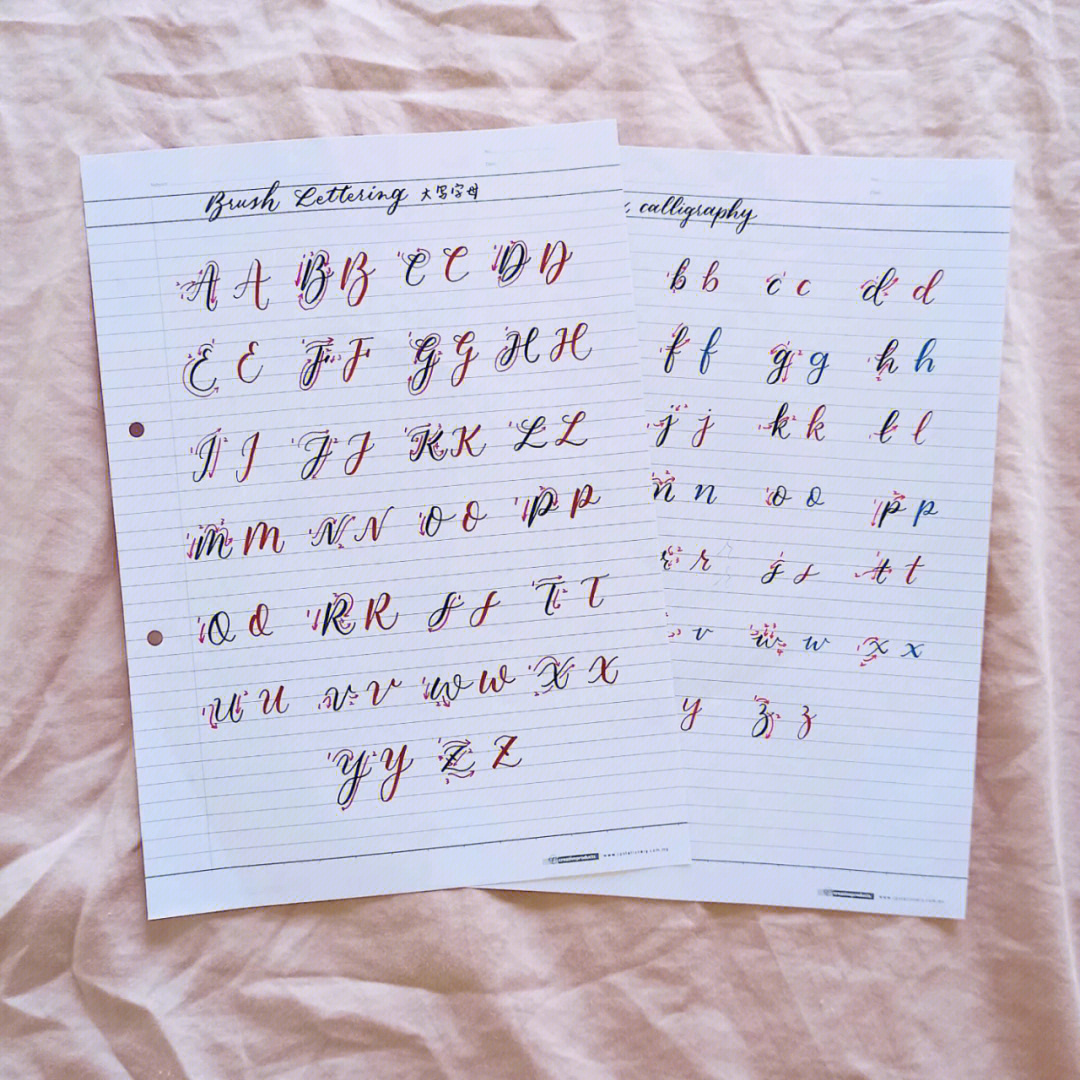 Brush Lettering 大写字母
A A B B C C D D
E E F F G G H H
I I J J K K L L
M M N N O O P P
Q Q R R S S T T
U U V V W W X X
Y Y Z Z
calligraphy
b b c c d d
f f g g h h
j j k k l l
n n o o p p
r r s s t t
v w w x x
y z z